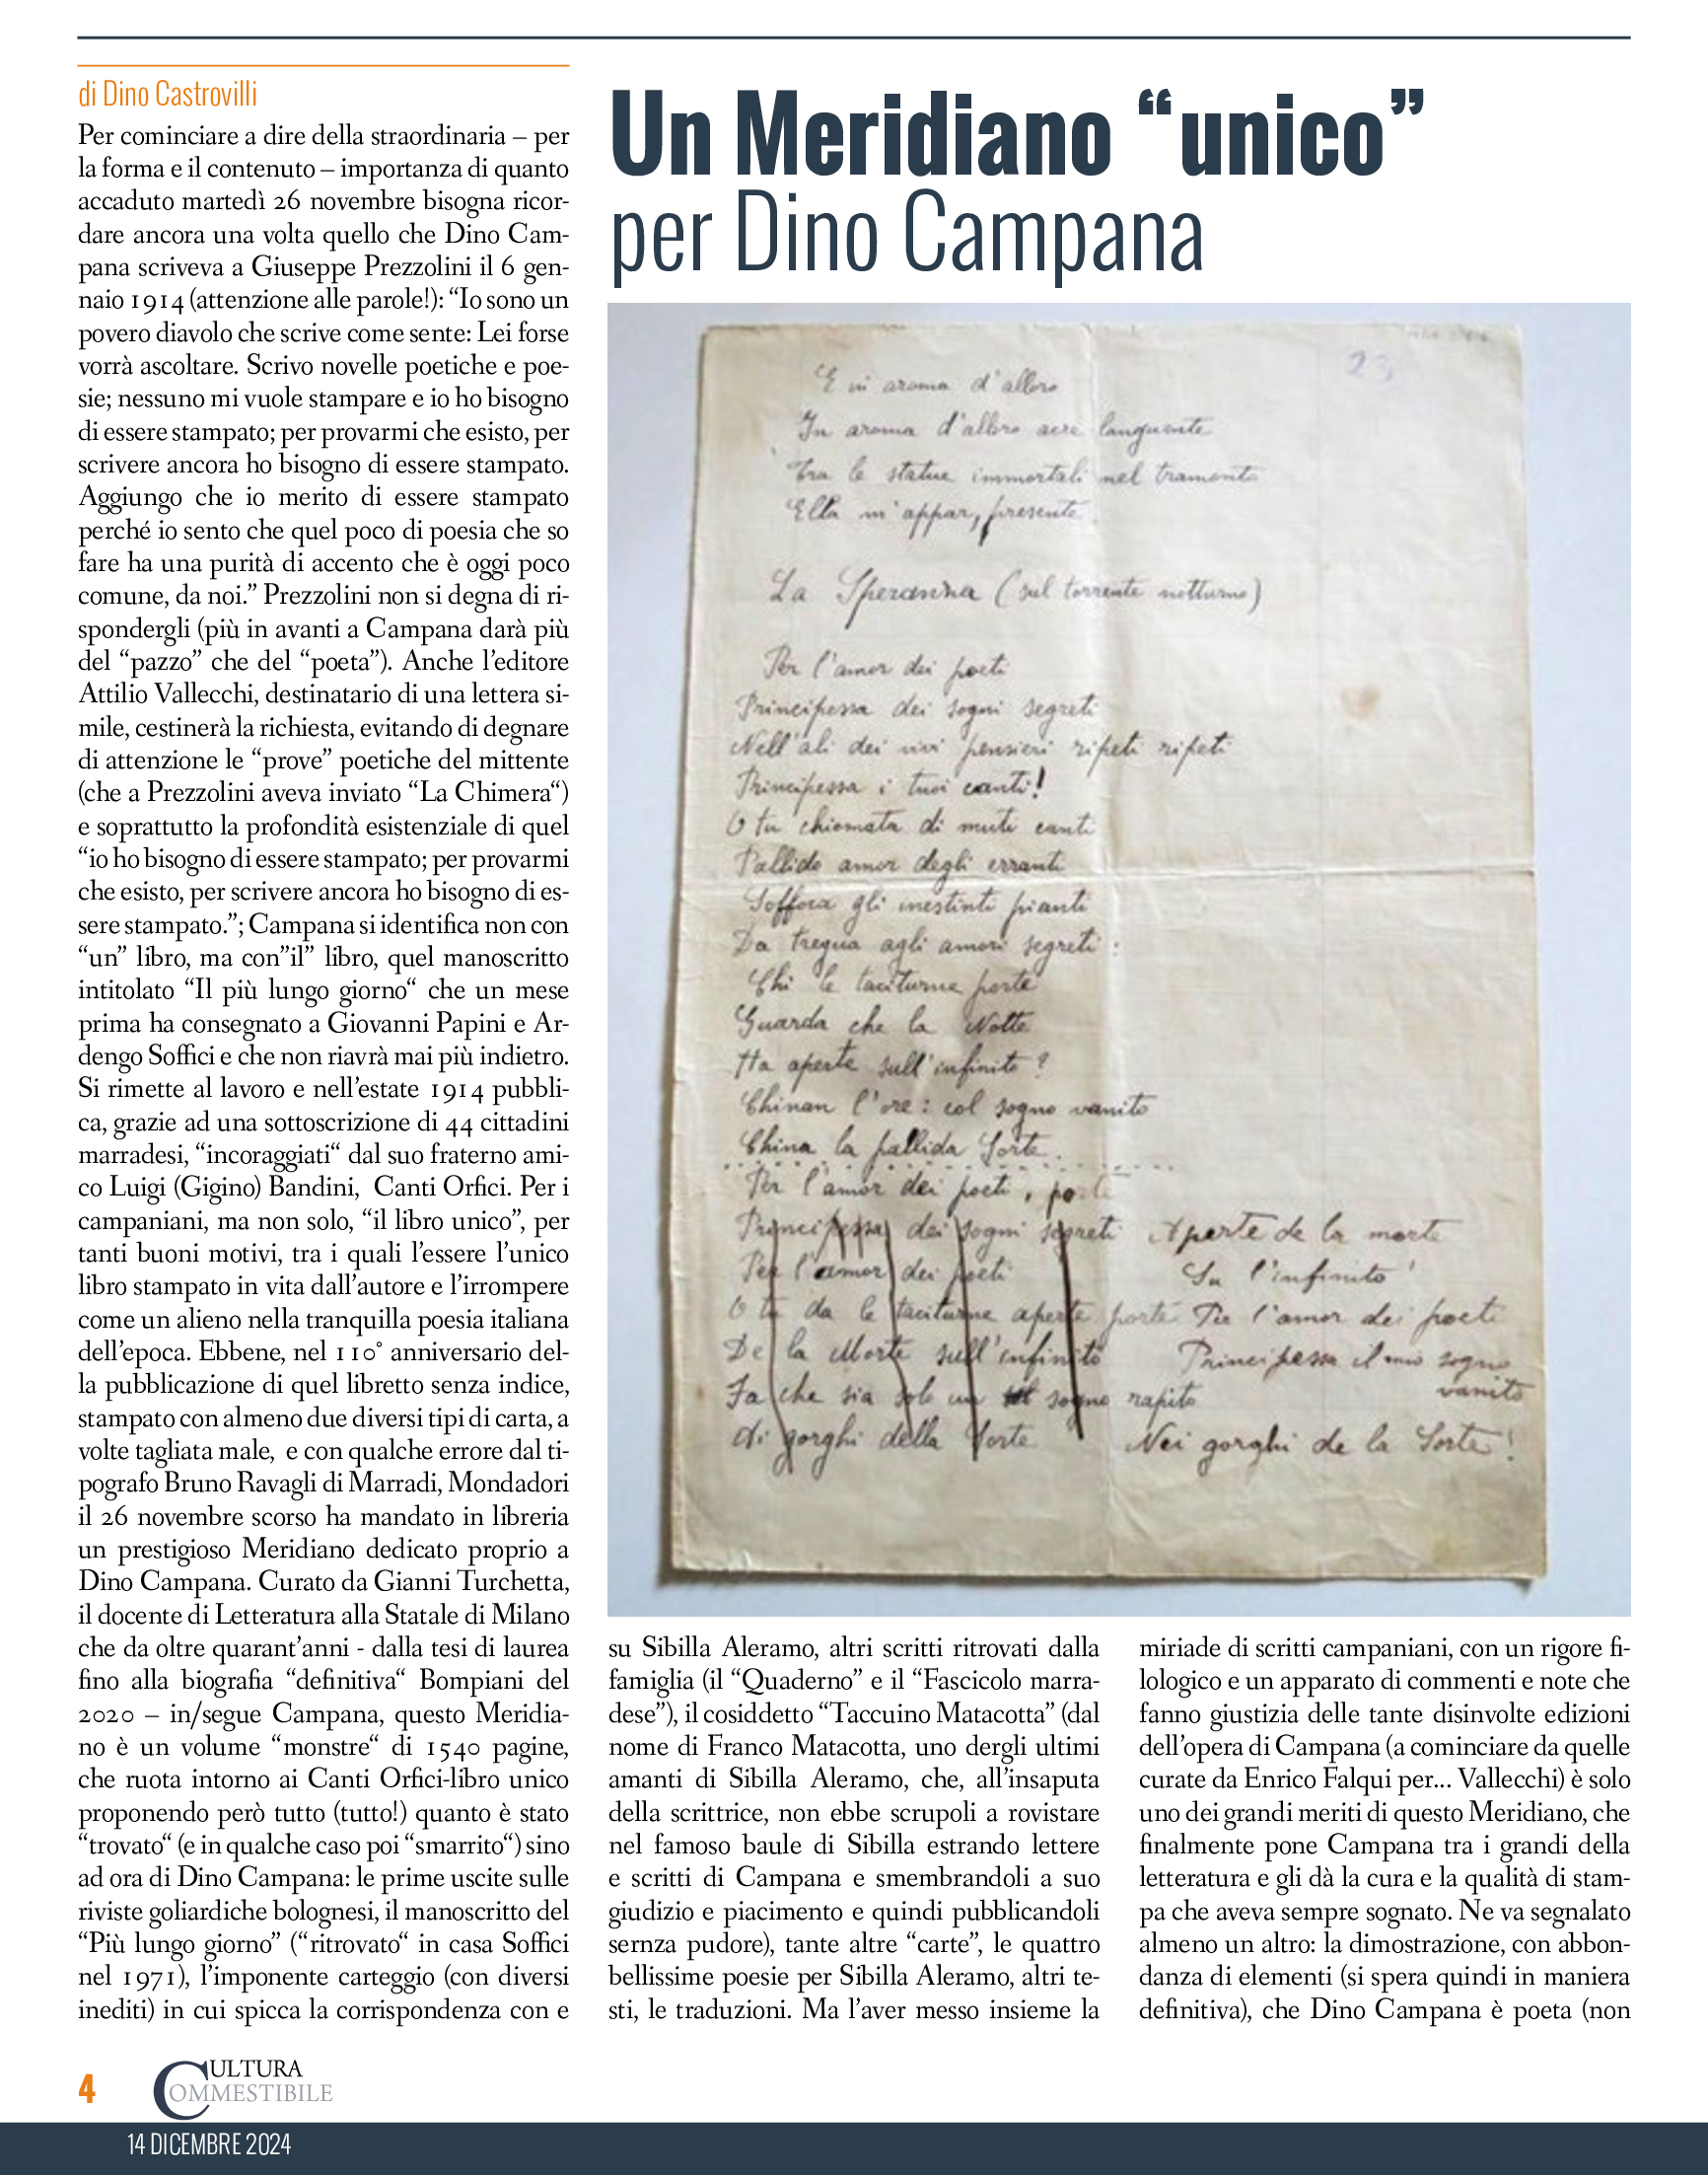 di Dino Castrovilli
Per cominciare a dire della straordinaria – per
la forma e il contenuto – importanza di quanto
accaduto martedì 26 novembre bisogna ricor-
dare ancora una volta quello che Dino Cam-
pana scriveva a Giuseppe Prezzolini il 6 gen-
naio 1914 (attenzione alle parole!): “Io sono un
povero diavolo che scrive come sente: Lei forse
vorrà ascoltare. Scrivo novelle poetiche e poe-
sie; nessuno mi vuole stampare e io ho bisogno
di essere stampato; per provarmi che esisto, per
scrivere ancora ho bisogno di essere stampato.
Aggiungo che io merito di essere stampato
perché io sento che quel poco di poesia che so
fare ha una purità di accento che è oggi poco
comune, da noi.” Prezzolini non si degna di ri-
spondergli (più in avanti a Campana darà più
del “pazzo” che del “poeta”). Anche l’editore
Attilio Vallecchi, destinatario di una lettera si-
mile, cestinerà la richiesta, evitando di degnare
di attenzione le “prove” poetiche del mittente
(che a Prezzolini aveva inviato “La Chimera“)
e soprattutto la profondità esistenziale di quel
“io ho bisogno di essere stampato; per provarmi
che esisto, per scrivere ancora ho bisogno di es-
sere stampato.”; Campana si identifica non con
“un” libro, ma con”il” libro, quel manoscritto
intitolato “Il più lungo giorno“ che un mese
prima ha consegnato a Giovanni Papini e Ar-
dengo Soffici e che non riavrà mai più indietro.
Si rimette al lavoro e nell’estate 1914 pubbli-
ca, grazie ad una sottoscrizione di 44 cittadini
marradesi, “incoraggiati“ dal suo fraterno ami-
co Luigi (Gigino) Bandini, Canti Orfici. Per i
campaniani, ma non solo, “il libro unico”, per
tanti buoni motivi, tra i quali l’essere l’unico
libro stampato in vita dall’autore e l’irrompere
come un alieno nella tranquilla poesia italiana
dell’epoca. Ebbene, nel 110° anniversario del-
la pubblicazione di quel libretto senza indice,
stampato con almeno due diversi tipi di carta, a
volte tagliata male, e con qualche errore dal ti-
pografo Bruno Ravagli di Marradi, Mondadori
il 26 novembre scorso ha mandato in libreria
un prestigioso Meridiano dedicato proprio a
Dino Campana. Curato da Gianni Turchetta,
il docente di Letteratura alla Statale di Milano
che da oltre quarant’anni - dalla tesi di laurea
fino alla biografia “definitiva“ Bompiani del
2020 – in/segue Campana, questo Meridia-
no è un volume “monstre“ di 1540 pagine,
che ruota intorno ai Canti Orfici-libro unico
proponendo però tutto (tutto!) quanto è stato
“trovato“ (e in qualche caso poi “smarrito“) sino
ad ora di Dino Campana: le prime uscite sulle
riviste goliardiche bolognesi, il manoscritto del
“Più lungo giorno” (“ritrovato“ in casa Soffici
nel 1971), l’imponente carteggio (con diversi
inediti) in cui spicca la corrispondenza con e
Un Meridiano “unico”
per Dino Campana
23
E in aroma d'alloro
In aroma d'alloro acre languente
Tra le statue immortali nel tramonto
Ella m'appar, presente.
La Speranza (sul torrente notturno)
Per l'amor dei poeti
Principessa dei sogni segreti
Nell'ali dei vivi pensieri ripeti ripeti
Principessa i tuoi canti!
O tu chiomata di muti canti
Pallido amor degli erranti
Soffoca gli inestinti pianti
Da tregua agli amori segreti:
Chi le taciturne porte
Guarda che la Notte
Ha aperte sull'infinito?
Chinan l'ore: col sogno vanito
China la pallida Sorte.
Per l'amor dei poeti, porte
Principessa dei sogni segreti Aperte de la morte
Per l'amor dei poeti Su l'infinito!
O tu da le taciturne aperte porte Per l'amor dei poeti
De la Morte sull'infinito Principessa il mio sogno
vanito
Fa che sia solo un sogno rapito
Di gorghi della Sorte Nei gorghi de la Sorte!
su Sibilla Aleramo, altri scritti ritrovati dalla
famiglia (il “Quaderno” e il “Fascicolo marra-
dese”), il cosiddetto “Taccuino Matacotta” (dal
nome di Franco Matacotta, uno dergli ultimi
amanti di Sibilla Aleramo, che, all’insaputa
della scrittrice, non ebbe scrupoli a rovistare
nel famoso baule di Sibilla estrando lettere
e scritti di Campana e smembrandoli a suo
giudizio e piacimento e quindi pubblicandoli
sernza pudore), tante altre “carte”, le quattro
bellissime poesie per Sibilla Aleramo, altri te-
sti, le traduzioni. Ma l’aver messo insieme la
miriade di scritti campaniani, con un rigore fi-
lologico e un apparato di commenti e note che
fanno giustizia delle tante disinvolte edizioni
dell’opera di Campana (a cominciare da quelle
curate da Enrico Falqui per... Vallecchi) è solo
uno dei grandi meriti di questo Meridiano, che
finalmente pone Campana tra i grandi della
letteratura e gli dà la cura e la qualità di stam-
pa che aveva sempre sognato. Ne va segnalato
almeno un altro: la dimostrazione, con abbon-
danza di elementi (si spera quindi in maniera
definitiva), che Dino Campana è poeta (non
4
CULTURA
COMMESTIBILE
14 DICEMBRE 2024